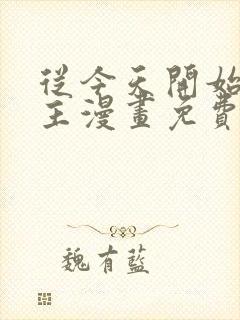 從今天開始
主漫畫免費
魏有藍